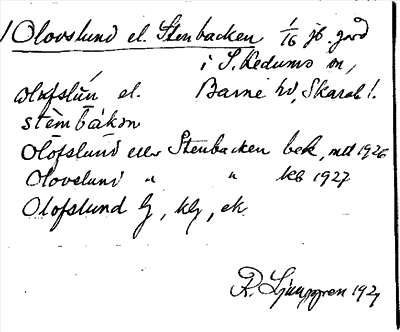 Olovslund el. Stenbacken 1/16 jb. gård
i S. Kedums sn,
olofslùn el. Barne hd, Skarab. l.
stèmbákən
Olofslund eller Stenbacken bek, mtl 1926
Olovslund " " kb 1927
Olofslund Gj, klj, ek.
R. Ljunggren 1927